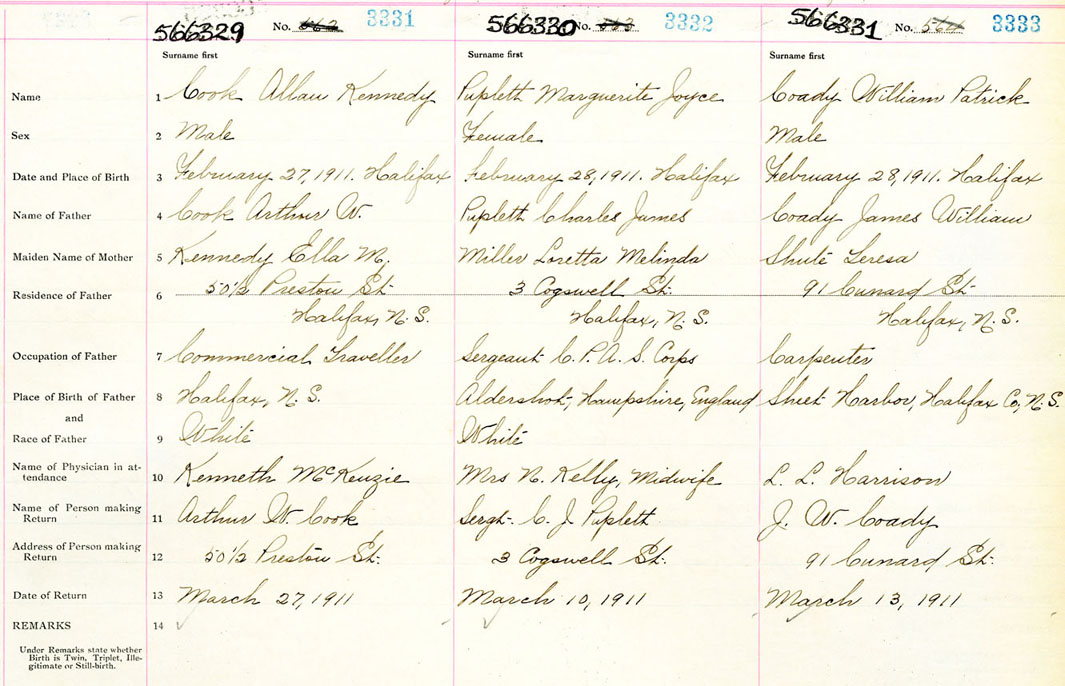 566329 No. 3331 566330 No. 3332 566331 No. 3333
Surname first Surname first Surname first
Name 1 Cook Allan Kennedy Pupleth Marguerite Joyce Coady William Patrick
Sex 2 Male Female Male
Date and Place of Birth 3 February 27, 1911. Halifax February 28, 1911. Halifax February 28, 1911. Halifax
Name of Father 4 Cook Arthur W. Pupleth Charles James Coady James William
Maiden Name of Mother 5 Kennedy Ella M. Miller Loretta Melinda Shute Teresa
Residence of Father 6 50½ Preston St. 3 Cogswell St. 91 Cunard St.
Halifax, N. S. Halifax, N. S. Halifax, N. S.
Occupation of Father 7 Commercial Traveller Sergeant C. P. A. S. Corps Carpenter
Place of Birth of Father 8 Halifax, N. S. Aldershot, Hampshire, England Sheet Harbor, Halifax Co, N. S.
and
Race of Father 9 White White
Name of Physician in at-
tendance 10 Kenneth McKenzie Mrs N. Kelly, Midwife L. L. Harrison
Name of Person making
Return 11 Arthur W. Cook Sergt. C. J. Pupleth J. W. Coady
Address of Person making
Return 12 50½ Preston St. 3 Cogswell St. 91 Cunard St.
Date of Return 13 March 27, 1911 March 10, 1911 March 13, 1911
REMARKS 14
Under Remarks state whether
Birth is Twin, Triplet, Ille-
gitimate or Still-birth.